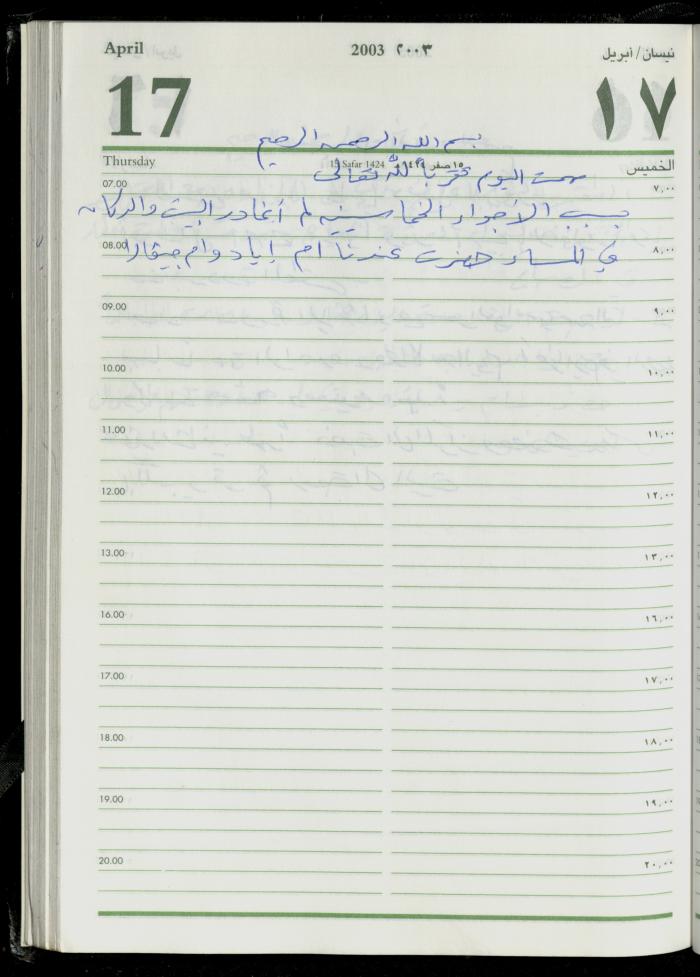 April 2003 ٢٠٠٣ نيسان/أبريل
17 ١٧
بسم الله الرحمن الرحيم
Thursday 15 Safar 1424 ١٥ صفر ١٤٢٤ الخميس
صمت اليوم تقرباً لله تعالى
07.00 ٧,٠٠
بسبب الأجواء الخماسينيه لم أغادر البيت والدكان
08.00 ٨,٠٠
في المساء حضرت عندنا ام إياد وام جيفارا
09.00 ٩,٠٠
10.00 ١٠,٠٠
11.00 ١١,٠٠
12.00 ١٢,٠٠
13.00 ١٣,٠٠
16.00 ١٦,٠٠
17.00 ١٧,٠٠
18.00 ١٨,٠٠
19.00 ١٩,٠٠
20.00 ٢٠,٠٠